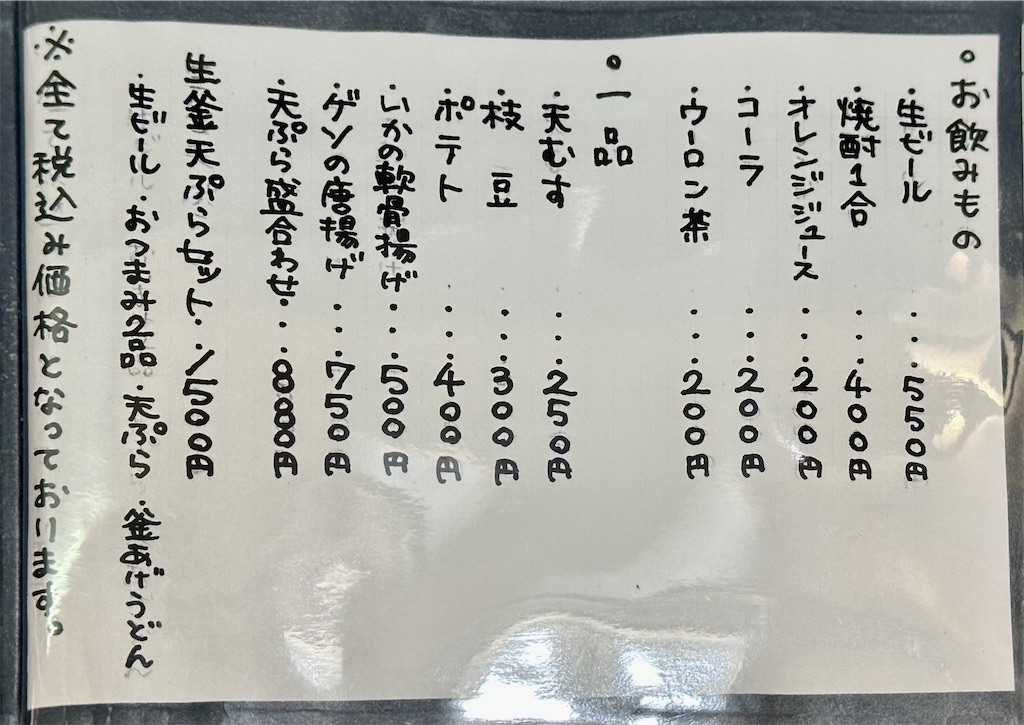 。お飲みもの
・生ビール ・・・550円
・焼酎1合 ・・・400円
・オレンジジュース ・・・200円
・コーラ ・・・200円
・ウーロン茶 ・・・200円
。一品
・天むす ・・・250円
・枝豆 ・・・300円
・ポテト ・・・400円
・いかの軟骨揚げ・・・500円
・ゲソの唐揚げ・・・750円
・天ぷら盛合わせ・・・880円
生釜天ぷらセット・1500円
・生ビール・おつまみ2品・天ぷら・釜あげうどん
※全て税込み価格となっております。